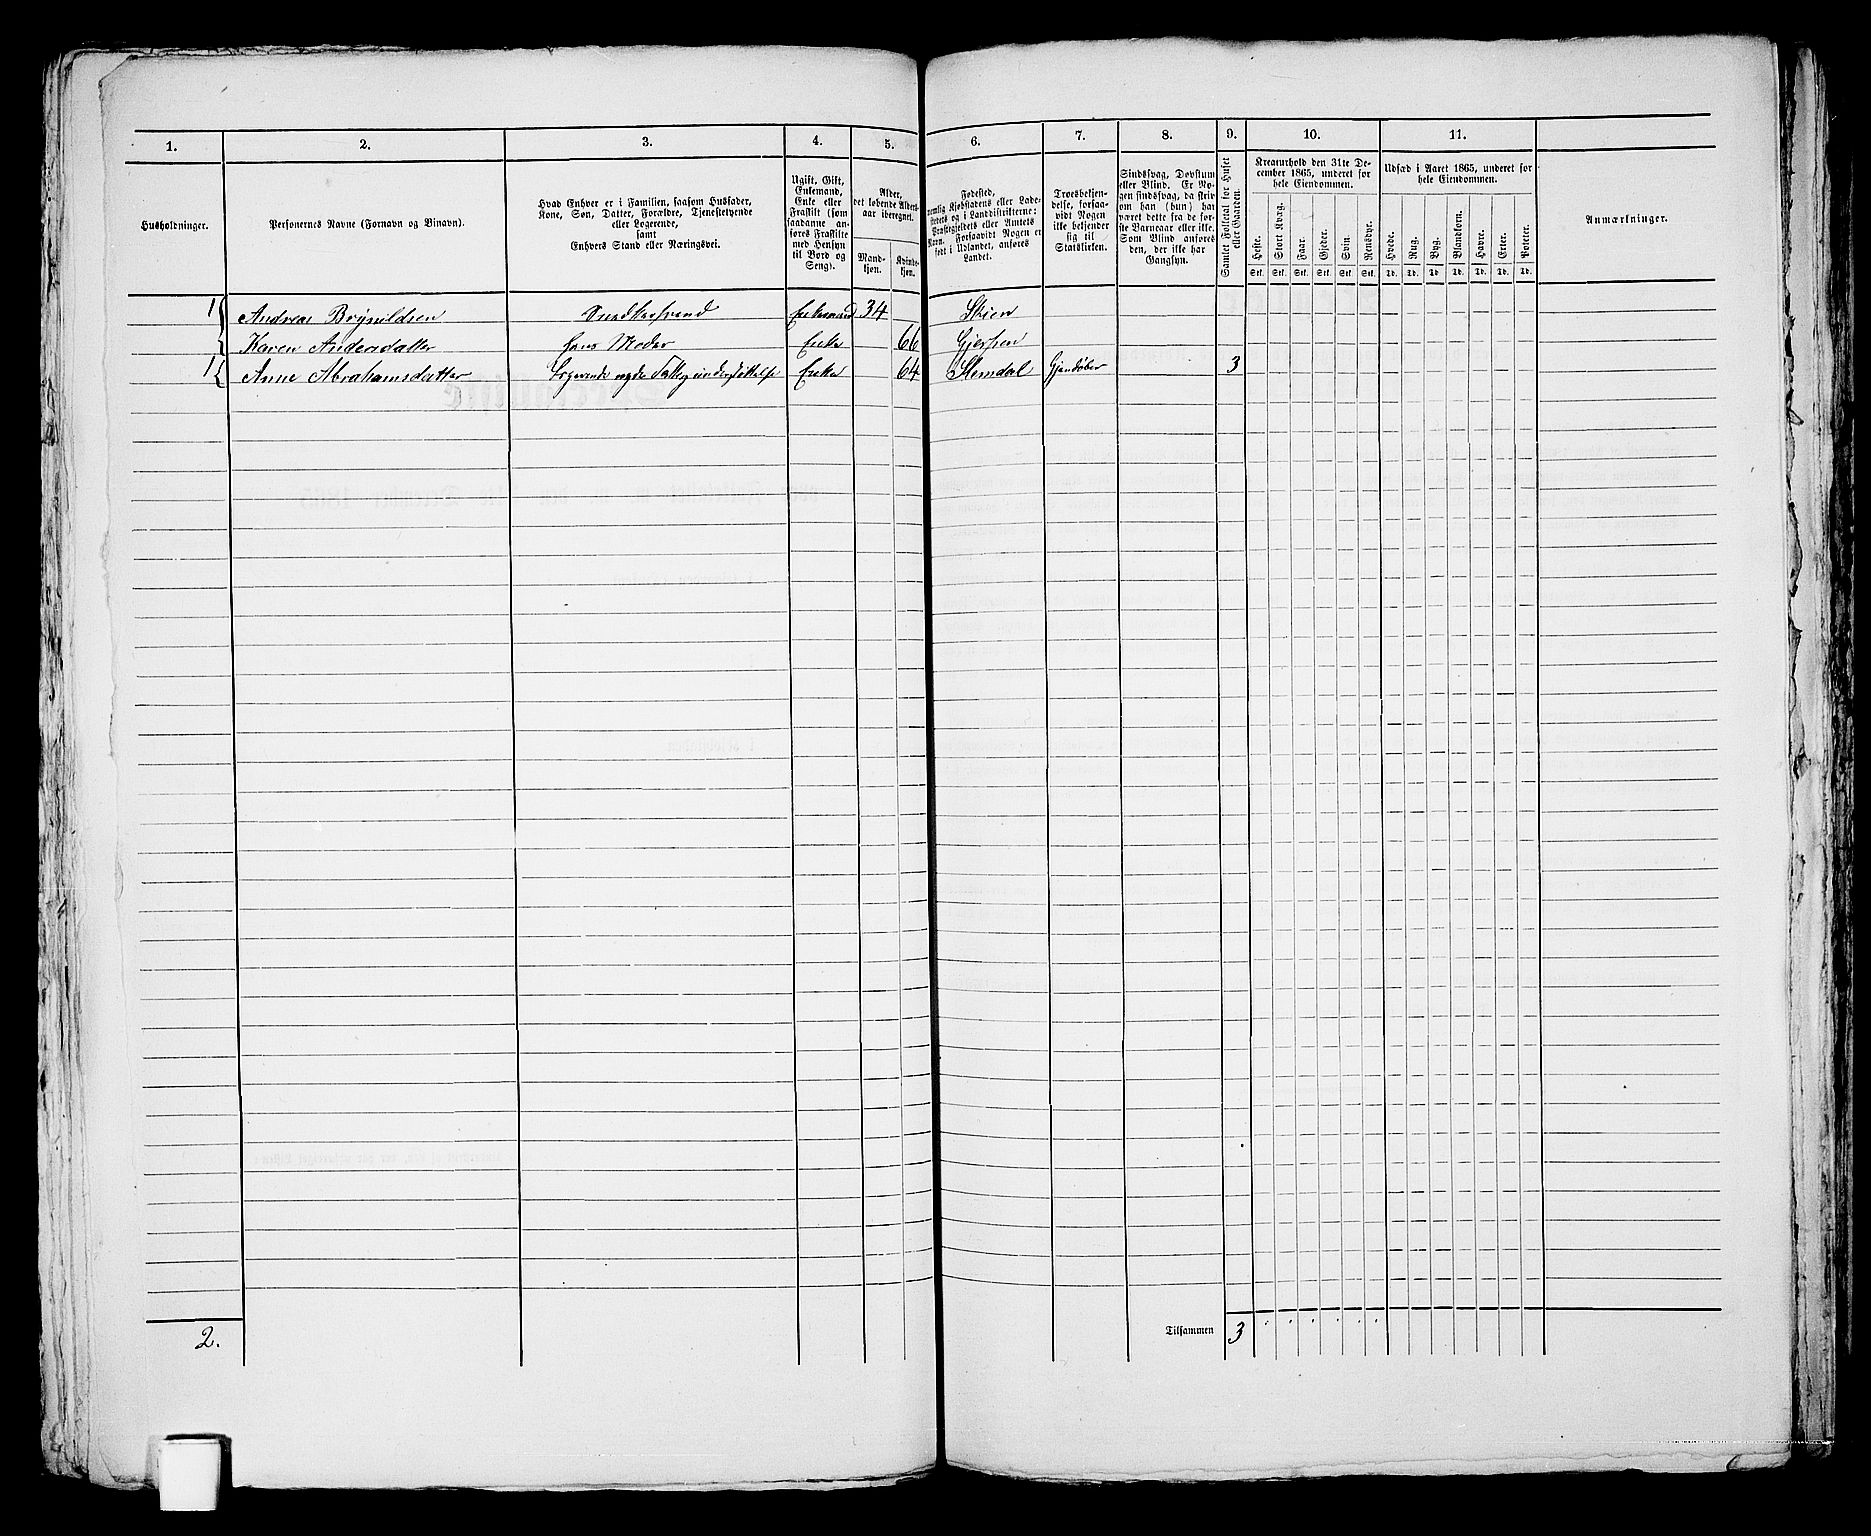 1. 2. 3. 4. 5. 6. 7. 8. 9. 10. 11.
Husholdninger.
Personernes Navne (Fornavn og Binavn).
Hvad Enhver er i Familien, saasom Husfader,
Kone, Søn, Datter, Forældre, Tjenestetyende
eller Logerende,
samt
Enhvers Stand eller Næringsvei.
Ugift, Gift,
Enkemand,
Enke eller
Fraskilt (som
saadanne an-
føres Fraskilte
med Hensyn
til Bord og
Seng).
Alder,
det løbende Alders-
aar iberegnet.
Mand-
kjøn.
Kvinde-
kjøn.
Fødested,
nemlig Kjøbstadens eller Lade-
stedets og i Landdistrikterne:
Præstegjeldets eller Amtets
Navn. Forsaavidt Nogen er
født i Udlandet, anføres
Landet.
Troesbekjen-
delse, forsaa-
vidt Nogen
ikke bekjender
sig til
Statskirken.
Sindssvag, Døvstum
eller Blind. Er No-
gen sindssvag, da skriv
om han (hun) har
været dette fra de før-
ste Barneaar eller ikke.
Som Blind anføres
den, der ikke har
Gangsyn.
Samlet Folketal for Huset
eller Gaarden.
Kreaturhold den 31te De-
cember 1865, underet for
hele Eiendommen.
Heste. Stort Kvæg. Faar. Gjeder. Svin. Rensdyr.
Stk. Stk. Stk. Stk. Stk. Stk.
Udsæd i Aaret 1865, underet for
hele Eiendommen.
Hvede. Rug. Byg. Blandkorn. Havre. Erter. Poteter.
Td. Td. Td. Td. Td. Td. Td.
Anmærkninger.
1 Andreas Brynildsen Enkemand 34 Skien
Karen Andersdatter hans Moder Enke 66 Gjerpen
1 Anne Abrahamsdatter Logerende nyder Fattigunderstøttelse Enke 64 Slemdal Gjendøber 3
2. Tilsammen 3